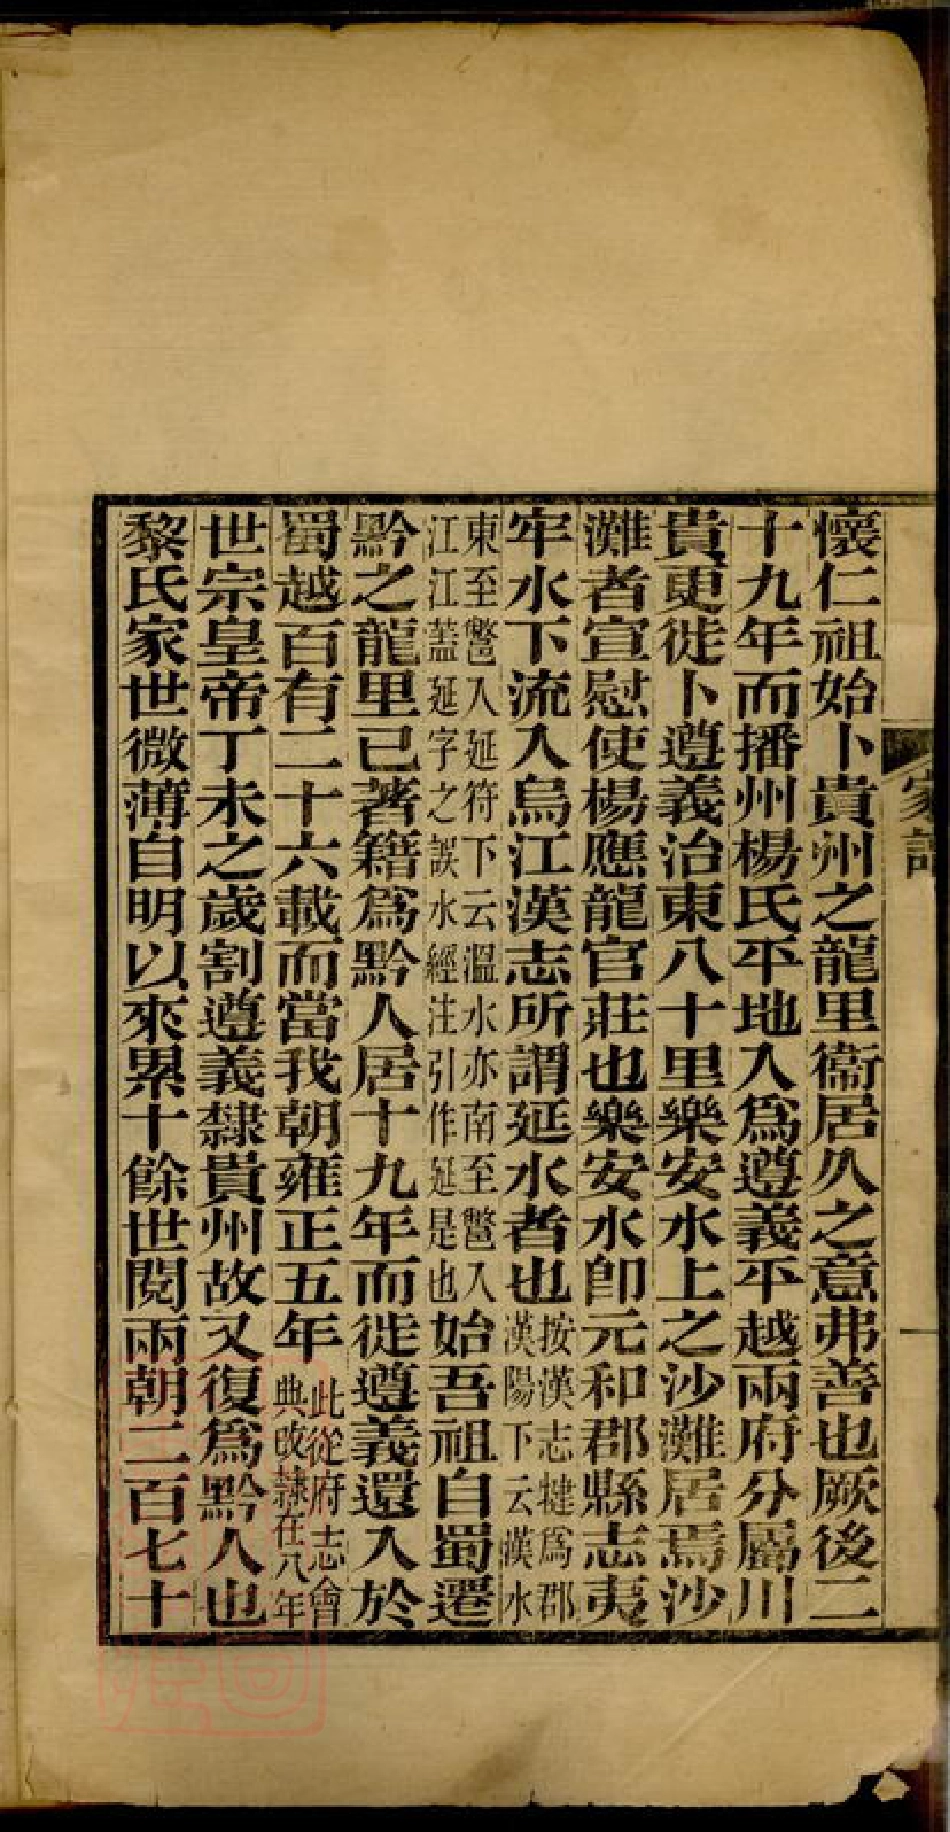 懷仁祖始卜貴州之龍里衞居久之意弗善也厥後二
十九年而播州楊氏平地入爲遵義平越兩府分屬川
貴更徙卜遵義治東八十里樂安水上之沙灘居焉沙
灘者宣慰使楊應龍官莊也樂安水卽元和郡縣志夷
牢水下流入烏江漢志所謂延水者也按漢志犍爲郡
漢陽下云漢水
東至鄨入延符下云溫水亦南至鄨入
江江蓋延字之誤水經注引作延是也始吾祖自蜀遷
黔之龍里已著籍爲黔人居十九年而徙遵義還入於
蜀越百有二十六載而當我朝雍正五年此從府志會
典改隸在八年
世宗皇帝丁未之歲割遵義隸貴州故又復爲黔人也
黎氏家世微薄自明以來累十餘世閱兩朝二百七十
家譜
一